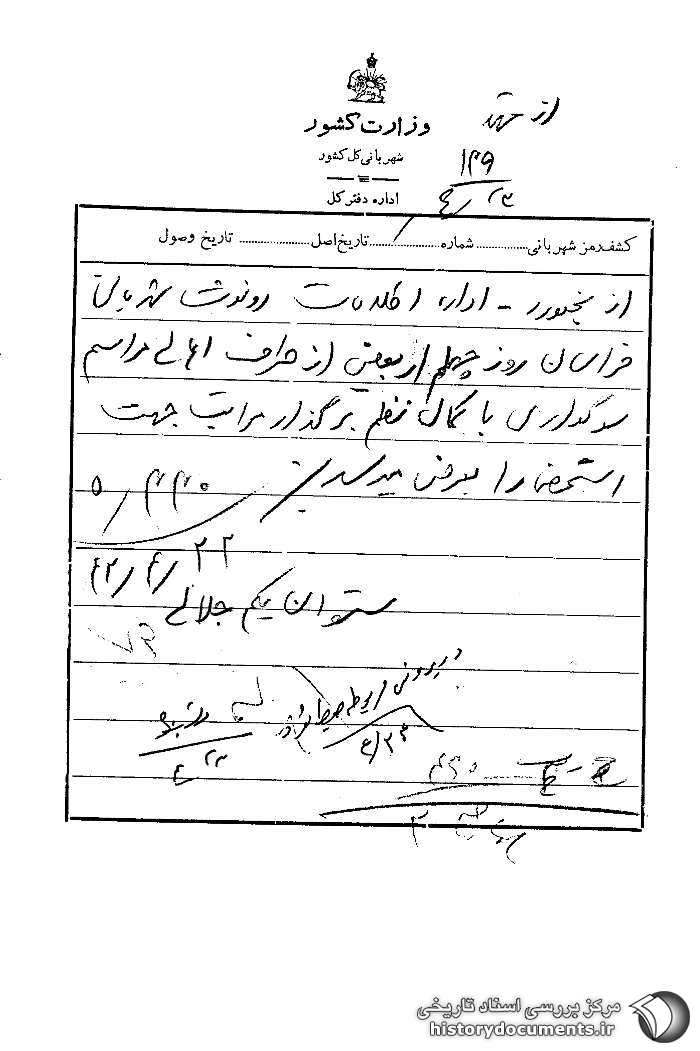 وزارت کشور
شهربانی کل کشور
اداره دفتر کل
از مشهد
۱۴۹
۴/۲۳
کشف رمز شهربانی .............. شماره .................. تاریخ اصل .................. تاریخ وصول
از بجنورد - اداره اطلاعات رونوشت شهربانی
خراسان روز چهلم اربعین از طرف اهالی مراسم
سوگواری با کمال نظم برگذار مراتب جهت
استحضار بعرض میرسد
۵/۴۴۰
۴۲/۴/۲۲
ستوان یکم جلالی
در پرونده مربوطه ضبط شود
۴/۲۴
۴/۲۳
مرکز بررسی اسناد تاریخی
historydocuments.ir